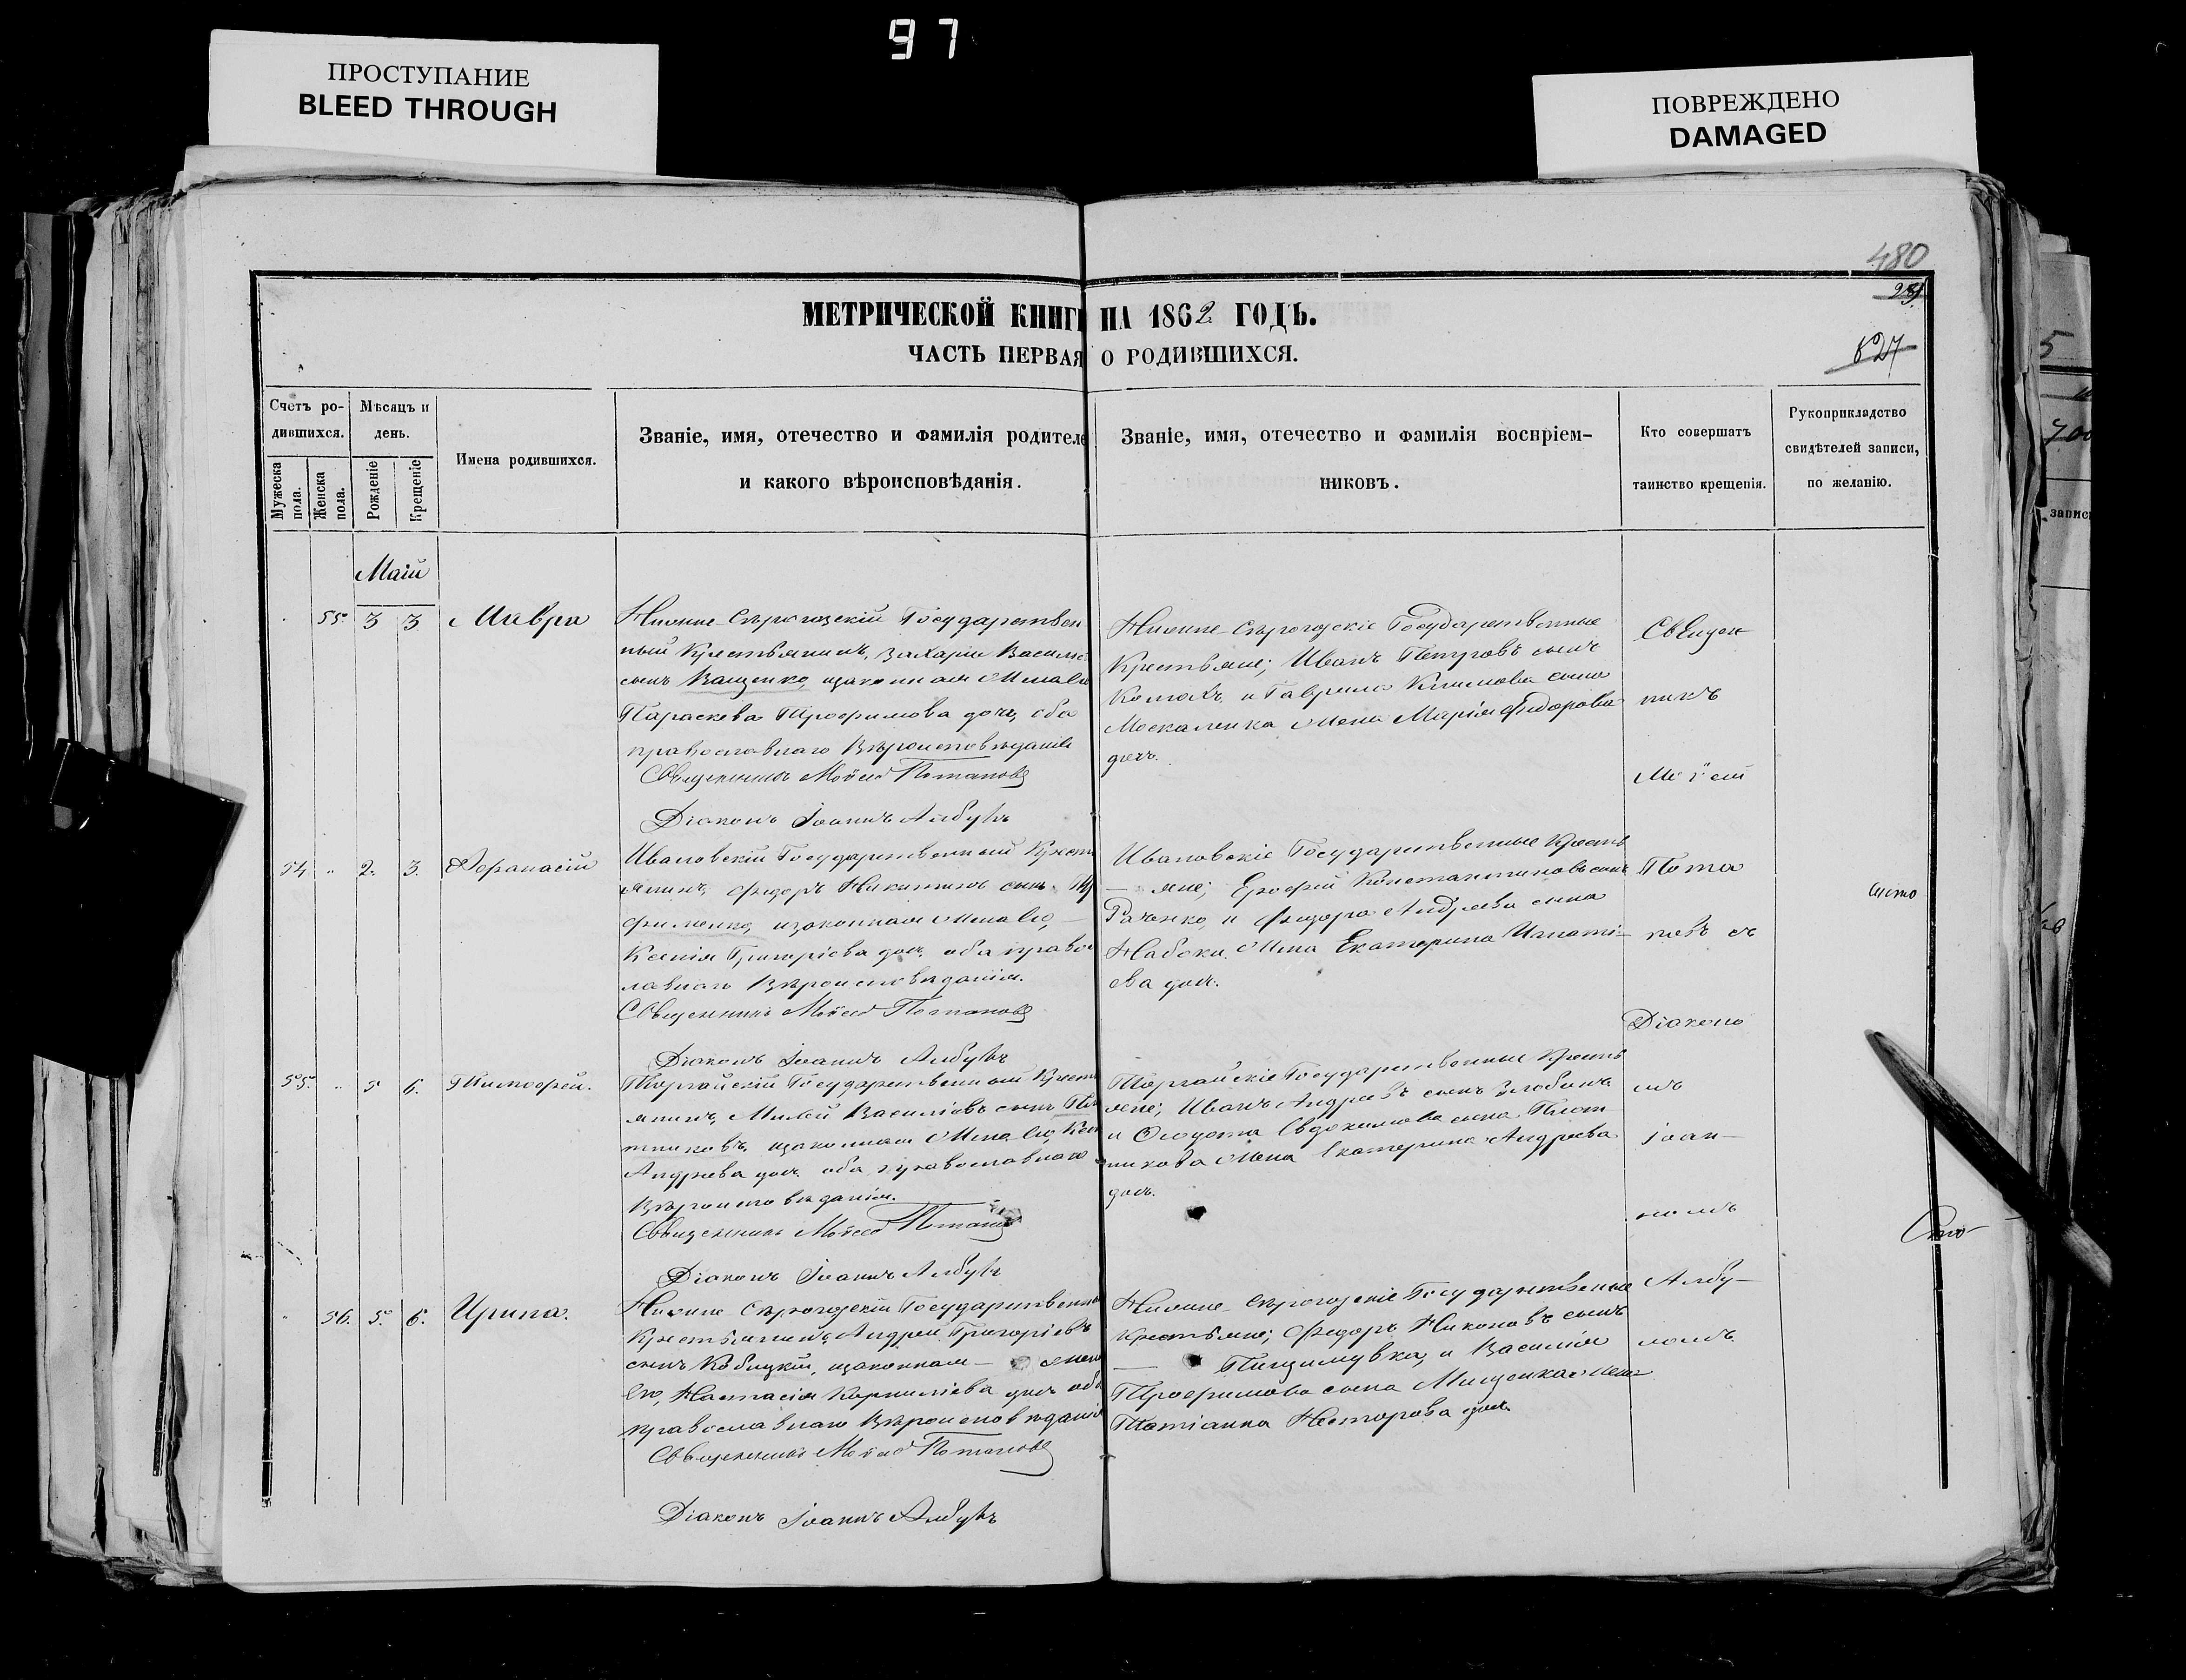 97
ПРОСТУПАНИЕ
BLEED THROUGH
ПОВРЕЖДЕНО
DAMAGED
480
827
МЕТРИЧЕСКОЙ КНИГИ НА 1862 ГОДЪ.
ЧАСТЬ ПЕРВАЯ О РОДИВШИХСЯ.
Счетъ ро-
дившихся.
Мужеска
пола.
Женска
пола.
Мѣсяцъ и
день.
Рожденіе
Крещеніе
Имена родившихся.
Званіе, имя, отечество и фамилія родителе
и какого вѣроисповѣданія.
Званіе, имя, отечество и фамилія воспріем-
никовъ.
Кто совершатъ
таинство крещенія.
Рукоприкладство
свидѣтелей записи,
по желанію.
Маій
55. 3 3 Мавра
Нижне-Сѣрогозскій Государствен
ный Крестьянинъ, Захарій Василіе
сынъ Ващенко, изаконная Жена Его
Параскева Трофимова дочь, оба
православнаго Вѣроисповѣданія
Священникъ Моѵсей Потаповъ
Діаконъ Іоаннъ Албулъ
Нижне-Сѣрогозскіе Государственные
Крестьяне; Иванъ Петровъ сынъ
и Гаврила Климова сына
Москаленка Жена Марія Федорова
дочь.
54 " 2. 3. Афанасій
Ивановскій Государственный Крест
янинъ, Федоръ Никитинъ сынъ Тр
фименко, изаконная Жена Его,
Ксенія Григоріева дочь, оба правос
лавнаго Вѣроисповѣданія.
Священникъ Моѵсей Потаповъ
Діаконъ Іоаннъ Албулъ
Ивановскіе Государственные Кресть
— яне; Ерофій Константиновъ сынъ
Раченко, и Федора Андреева сына
Набоки, Жена Екатерина Игнаті-
ева дочь.
55. " 5 6. Тимофей.
Торгайскій Государственный Крест
янинъ, Василіевъ сынъ Пло
тниковъ, изаконная Жена Его, Ксен
Андреева дочь, оба православнаго
Вѣроисповѣданія.
Священникъ Моѵсей Потаповъ
Діаконъ Іоаннъ Албулъ
Торгайскіе Государственные Кресть
яне; Иванъ Андреевъ сынъ Злобинъ
и Федота Евдокимова сына Плот
никова Жена Екатерина Андреева
дочь.
" 56. 5. 6. Ирина.
Нижне-Сѣрогозскій Государственны
Крестьянинъ, Андрей Григоріевъ
сынъ Кобицкій, изаконная — жена
Его, Настасія Корниліева дочь, оба
православнаго Вѣроисповѣданія
Священникъ Моѵсей Потаповъ
Діаконъ Іоаннъ Албулъ
Нижне-Сѣрогозскіе Государственные
Крестьяне; Федоръ Никоновъ сынъ
— и Василія
Трофимова сына Мищенка жена
Татіанна Нестерова дочь.
Священ
никъ
Моѵсей
Пота
повъ съ
Діакено
мъ
Іоан-
номъ
Албу-
ломъ